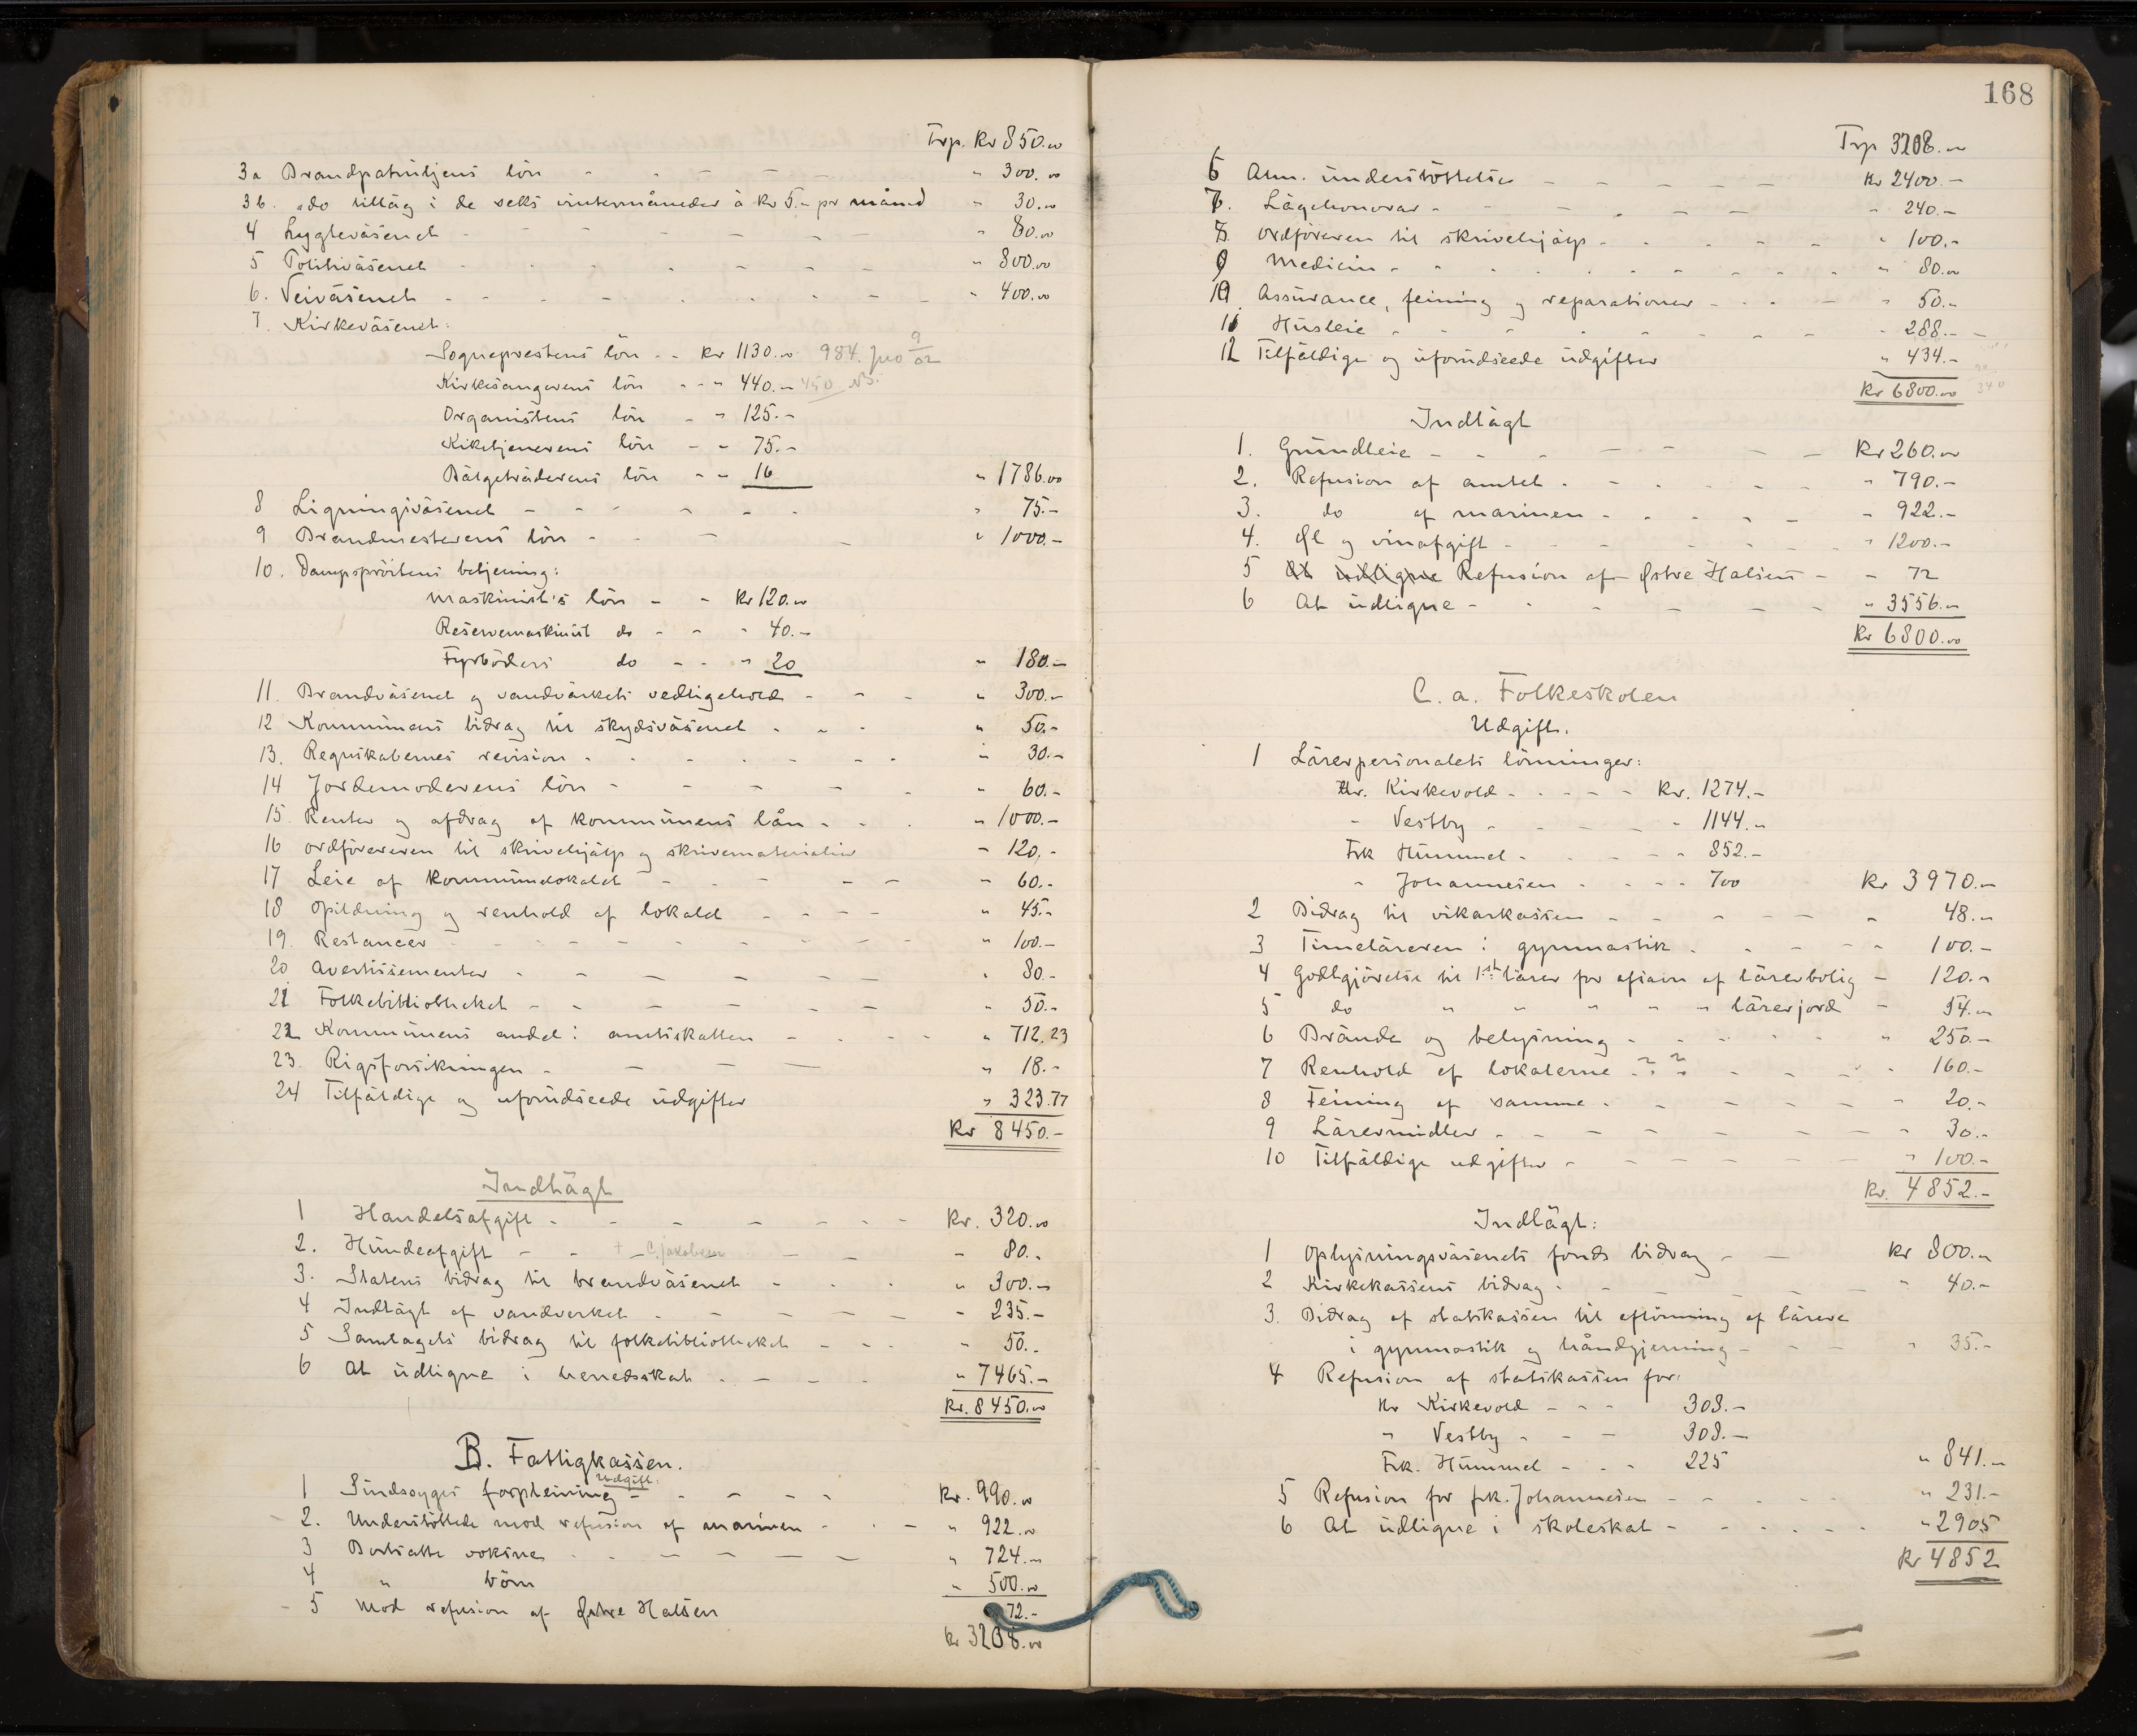 Trp. Kr 850.00
3a Brandpatruljens lön - - - - - " 300.00
3b. "do tillæg i de seks vintermåneder à kr 5.- pr måned " 30.00
4 Lygtevæsenet - - - - - - " 80.00
5 Politivæsenet - - - - - - " 800.00
6. Veivæsenet - - - - - - " 400.00
7. Kirkevæsenet:
Sogneprestens lön - - Kr 1130.00 984. pro 9/02
Kirkesangerens lön - - " 440.- 450 NB.
Organistens lön - " 125.-
Kirketjenerens lön - - 75.-
Bælgetræderens lön - - 16 " 1786.00
8 Ligningsvæsenet - - - - - " 75.-
9 Brandmesterens lön - - - - " 1000.-
10. Dampspröitens betjening:
Maskinist's lön - - Kr 120.00
Reservemaskinist do - - " 40.-
Fyrböders do - - " 20 " 180.-
11. Brandvæsenet og vandværkets vedligehold - - - " 300.-
12 Kommunens bidrag til skydsvæsenet - - - " 50.-
13. Regnskabernes revision - - - - - " 30.-
14 Jordemoderens lön - - - - - " 60.-
15. Renter og afdrag af kommunens lån - - - " 1000.-
16 ordföreren til skrivehjælp og skrivematerialier - 120.-
17 Leie af kommunelokalet - - - - - " 60.-
18 Opildning og renhold af lokalet - - - - " 45.-
19. Restancer - - - - - - " 100.-
20 Avertissementer - - - - - - " 80.-
21 Folkebibliotheket - - - - - - " 50.-
22 Kommunens andel i amtsskatten - - - - " 712.23
23. Rigsforsikringen - - - - " 18.-
24 Tilfældige og uforudseede udgifter " 323.77
Kr 8450.-
Indtægt
1 Handelsafgift - - - - - - Kr. 320.00
2. Hundeafgift - - + C. Jakobsen - - - 80.-
3. Statens bidrag til brandvæsenet - - - " 300.-
4 Indtægt af vandverket - - - - - 235.-
5 Samlagets bidrag til folkebibliotheket - - - " 50.-
6 At udligne i herredsskat - - - - " 7465.-
Kr. 8450.00
B. Fattigkassen.
Udgift:
1 Sindssyges forpleining - - - - Kr. 990.00
2. Understöttede mod refusion af marinen - - - " 922.00
3 Bortsatte voksne - - - - - " 724.-
4 " börn " 500.00
5 Mod refusion af Østre Halsen 72.-
kr 3208.00
168
Trp 3208.00
6 Alm. understöttelse - - - - - Kr 2400.-
7. Lægehonorar - - - - - - " 240.-
8. Ordföreren til skrivehjælp - - - - - " 100.-
9 Medicin - - - - - - - - " 80.00
10. Assurance, feining og reparationer - - - - " 50.-
11 Husleie - - - - - - - " 288.-
12 Tilfældige og uforudseede udgifter " 434.-
Kr 6800.00 340
Indtægt
1. Grundleie - - - - - - Kr 260.00
2. Refusion af amtet - - - - - " 790.-
3. do af marinen - - - - - " 922.-
4. Øl og vinafgift - - - - - - " 1200.-
5 At udligne Refusion af Østre Halsens - - 72
6 At udligne - - - - - - " 3556.-
Kr 6800.00
C. a. Folkeskolen
Udgift.
1 Lærerpersonalets lönninger:
Hr. Kirkevold - - - - - Kr. 1274.-
" Vestby - - - - - " 1144.-
Frk Hummel - - - - " 852.-
" Johannesen - - - - 700 Kr 3970.-
2 Bidrag til vikarkassen - - - - - " 48.-
3 Timelæreren i gymnastik - - - - - " 100.-
4 Godtgjörelse til 1ste lærer for afsavn af lærerbolig - 120.-
5 do " " " " " lærerjord - 54.-
6 Brænde og belysning - - - - - " 250.-
7 Renhold af lokalerne - - - - - - 160.-
8 Feining af samme - - - - - - " 20.-
9 Læremidler - - - - - - - " 30.-
10 Tilfældige udgifter - - - - - - " 100.-
Kr. 4852.-
Indtægt:
1 Oplysningsvæsenets fonds bidrag - - Kr 800.-
2 Kirkekassens bidrag - - - - - - " 40.-
3. Bidrag af statskassen til aflönning af lærere
i gymnastik og håndgjerning - - - " 35.-
4 Refusion af statskassen for:
Hr Kirkevold - - - 308.-
" Vestby - - - 308.-
Frk. Hummel - - - 225 " 841.-
5 Refusion for frk. Johannesen - - - - - " 231.-
6 At udligne i skoleskat - - - - - " 2905
Kr 4852